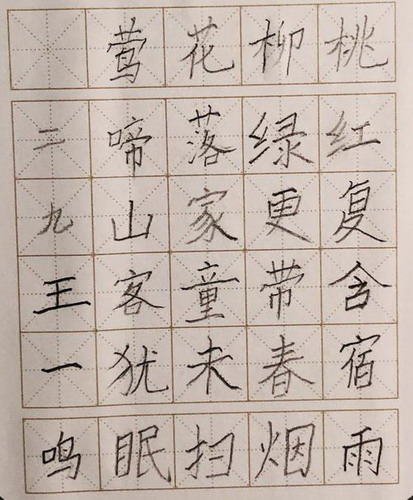 桃红复含宿雨
柳绿更带春烟
花落家童未扫
莺啼山客犹眠
二九王一鸣